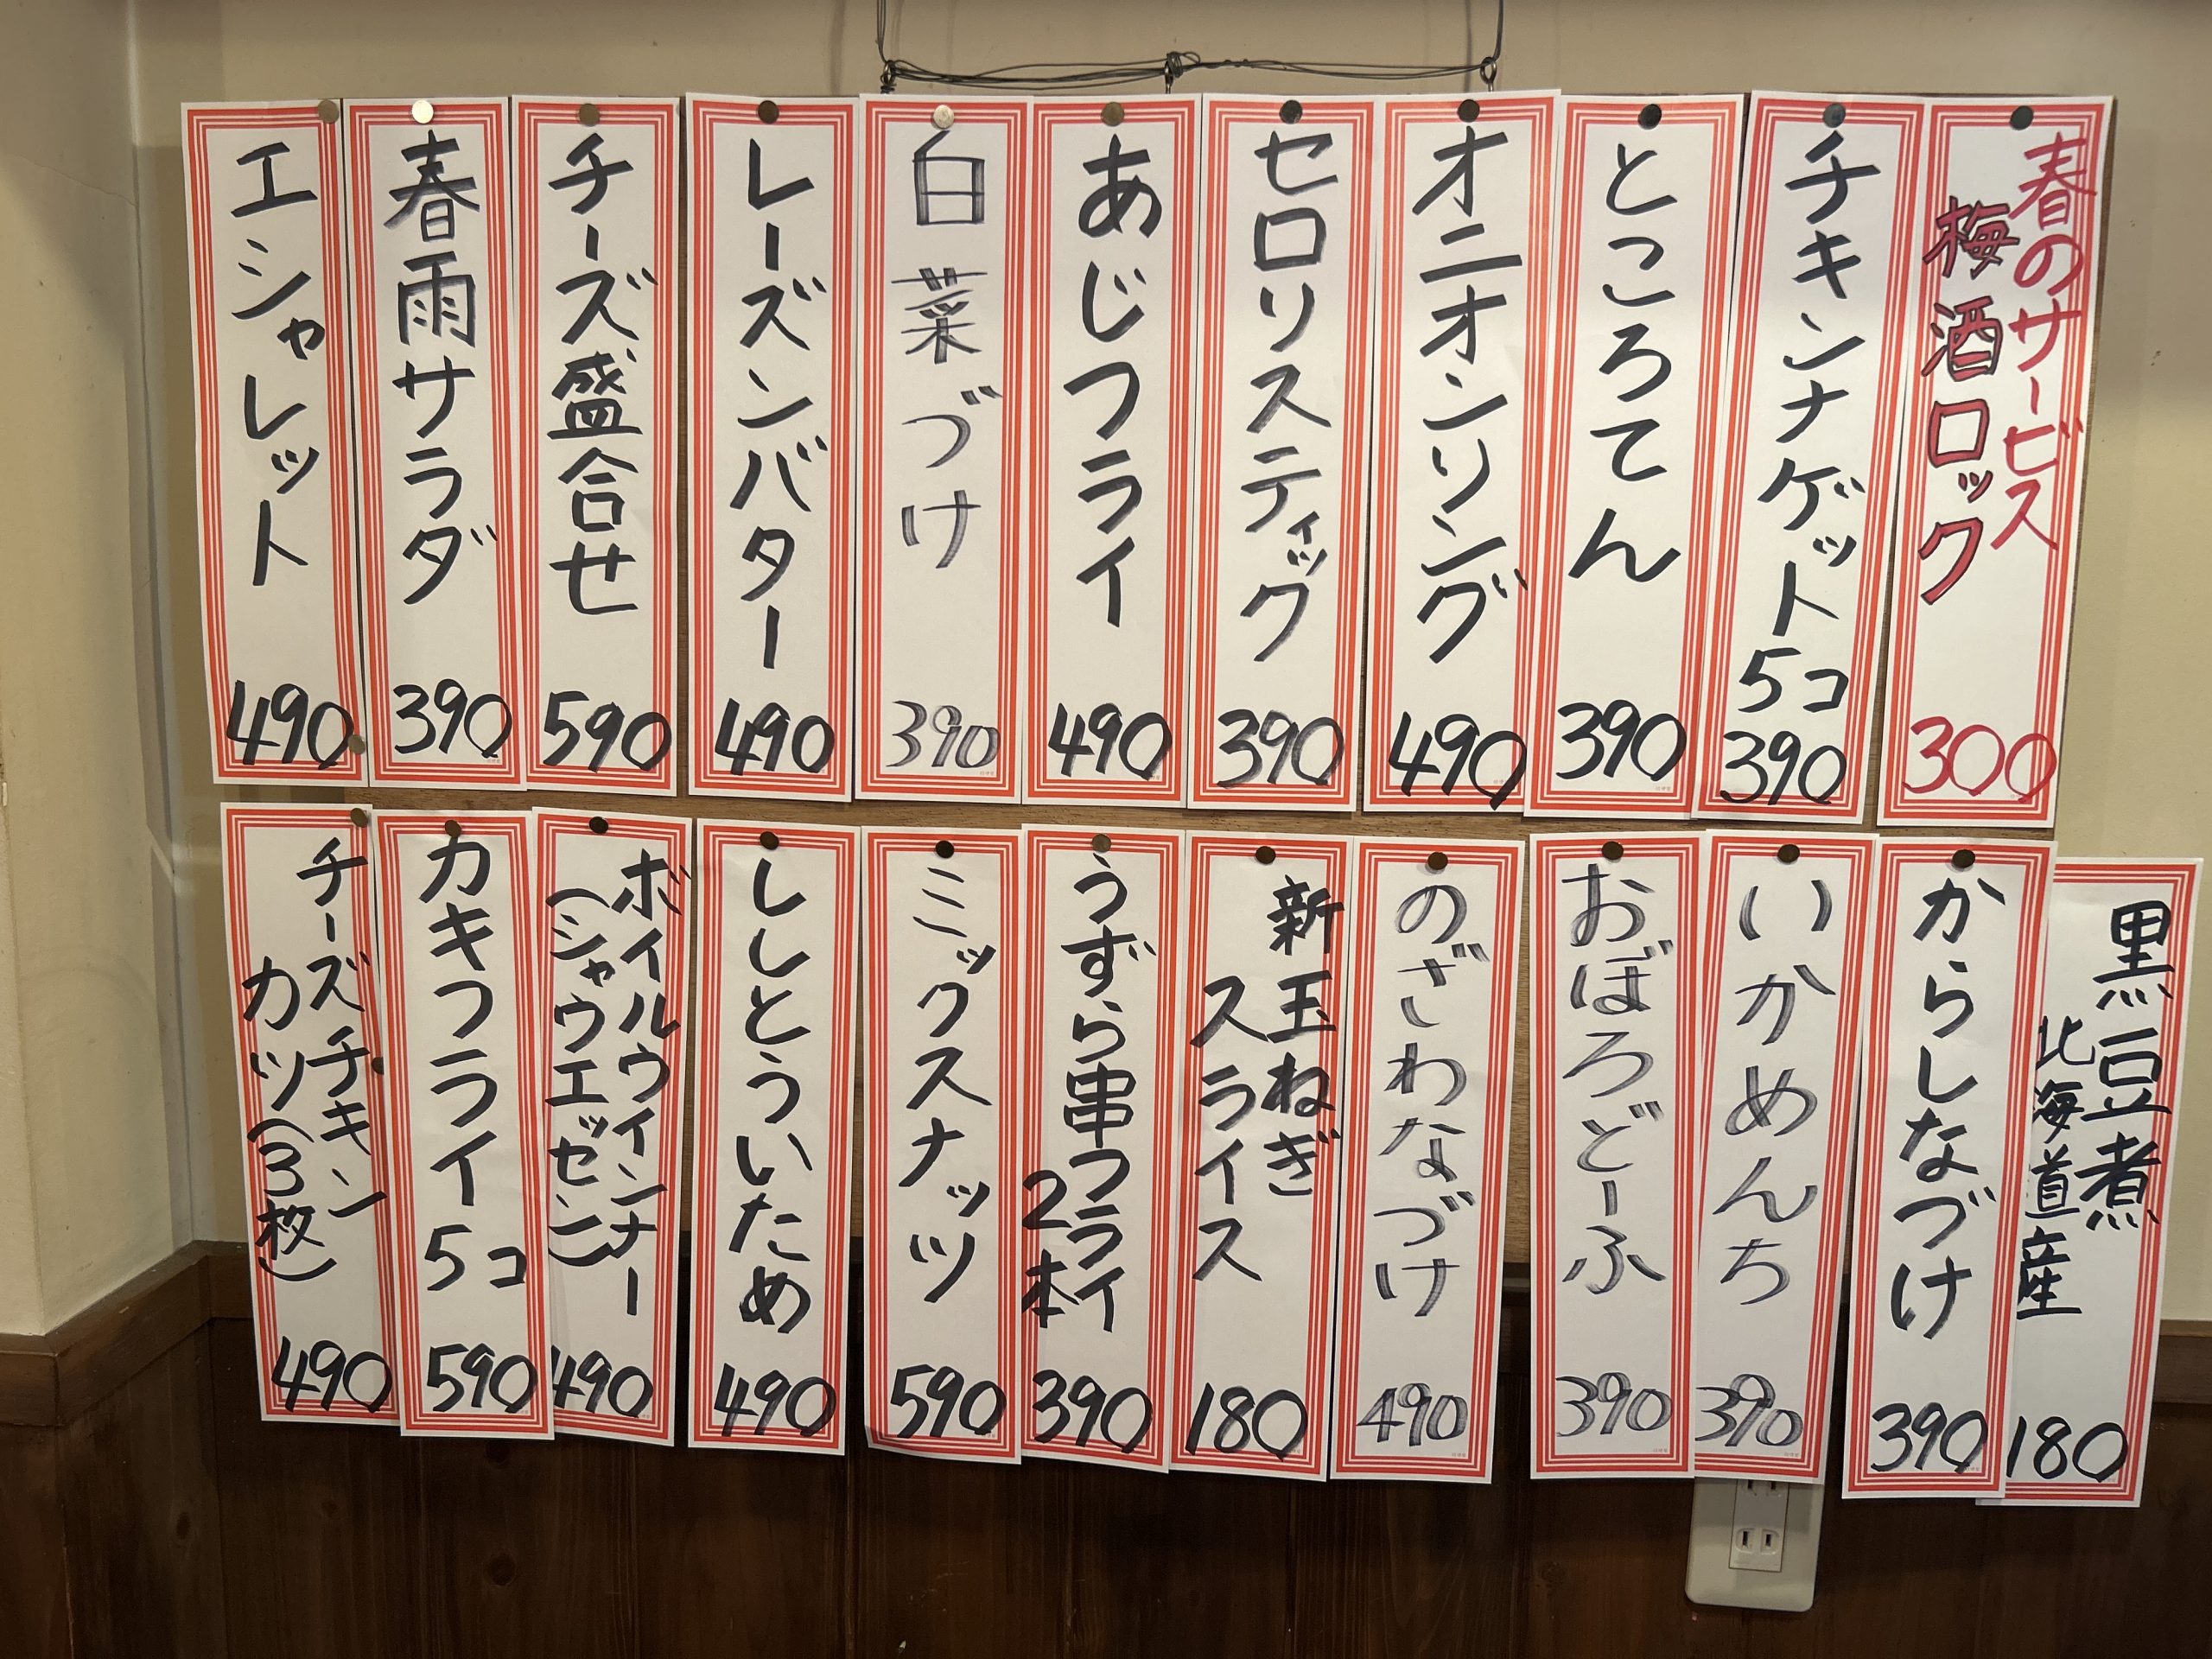 春のサービス
梅酒ロック
300
チキンナゲット5コ
390
ところてん
390
オニオンリング
490
セロリスティック
390
あじフライ
490
白菜づけ
390
レーズンバター
490
チーズ盛合せ
590
春雨サラダ
390
エシャレット
490
黒豆煮
北海道産
180
からしなづけ
390
いかめんち
390
おぼろどーふ
390
のざわなづけ
490
新玉ねぎ
スライス
180
うずら串フライ
2本
390
ミックスナッツ
590
ししとういため
490
ボイルウインナー
(シャウエッセン)
490
カキフライ5コ
590
チーズチキン
カツ(3枚)
490